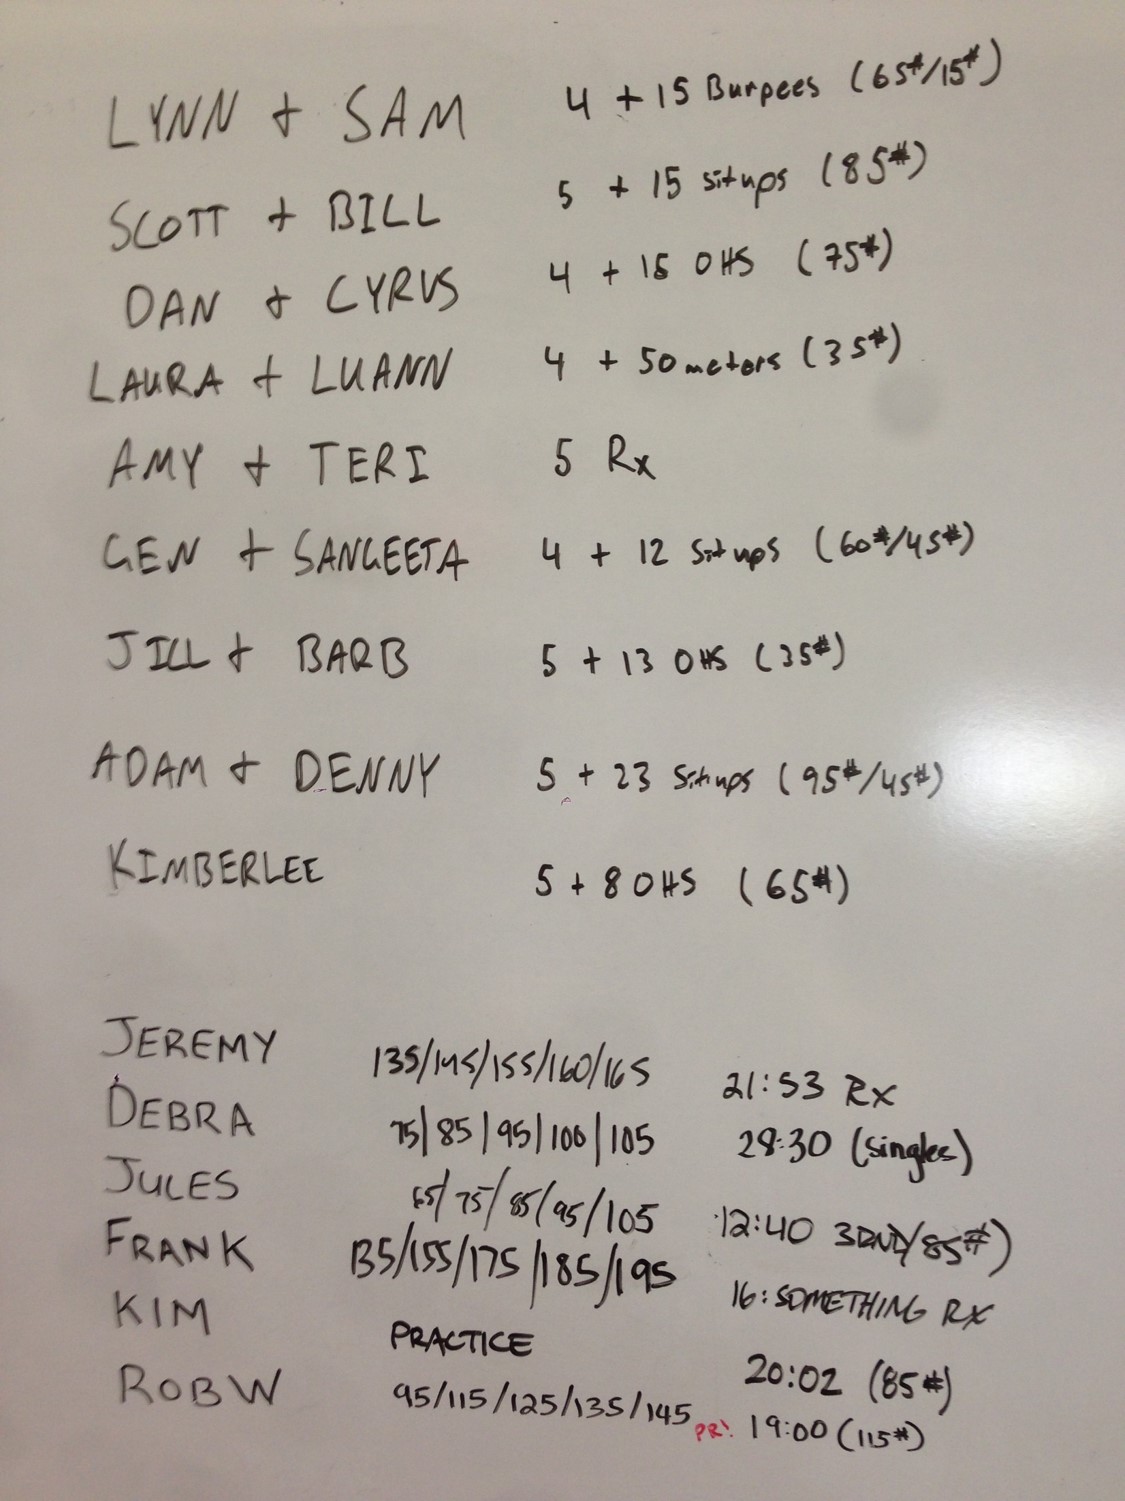 LYNN + SAM 4 + 15 Burpees (65#/15#)
SCOTT + BILL 5 + 15 situps (85#)
DAN + CYRUS 4 + 15 OHS (75#)
LAURA + LUANN 4 + 50 meters (35#)
AMY + TERI 5 Rx
GEN + SANGEETA 4 + 12 Situps (60#/45#)
JILL + BARB 5 + 13 OHS (35#)
ADAM + DENNY 5 + 23 Situps (95#/45#)
KIMBERLEE 5 + 8 OHS (65#)
JEREMY 135/145/155/160/165 21:53 Rx
DEBRA 75/85/95/100/105 28:30 (singles)
JULES 65/75/85/95/105 12:40 3RND/85#)
FRANK 135/155/175/185/195 16:SOMETHING RX
KIM PRACTICE 20:02 (85#)
ROB W 95/115/125/135/145 PR! 19:00 (115#)